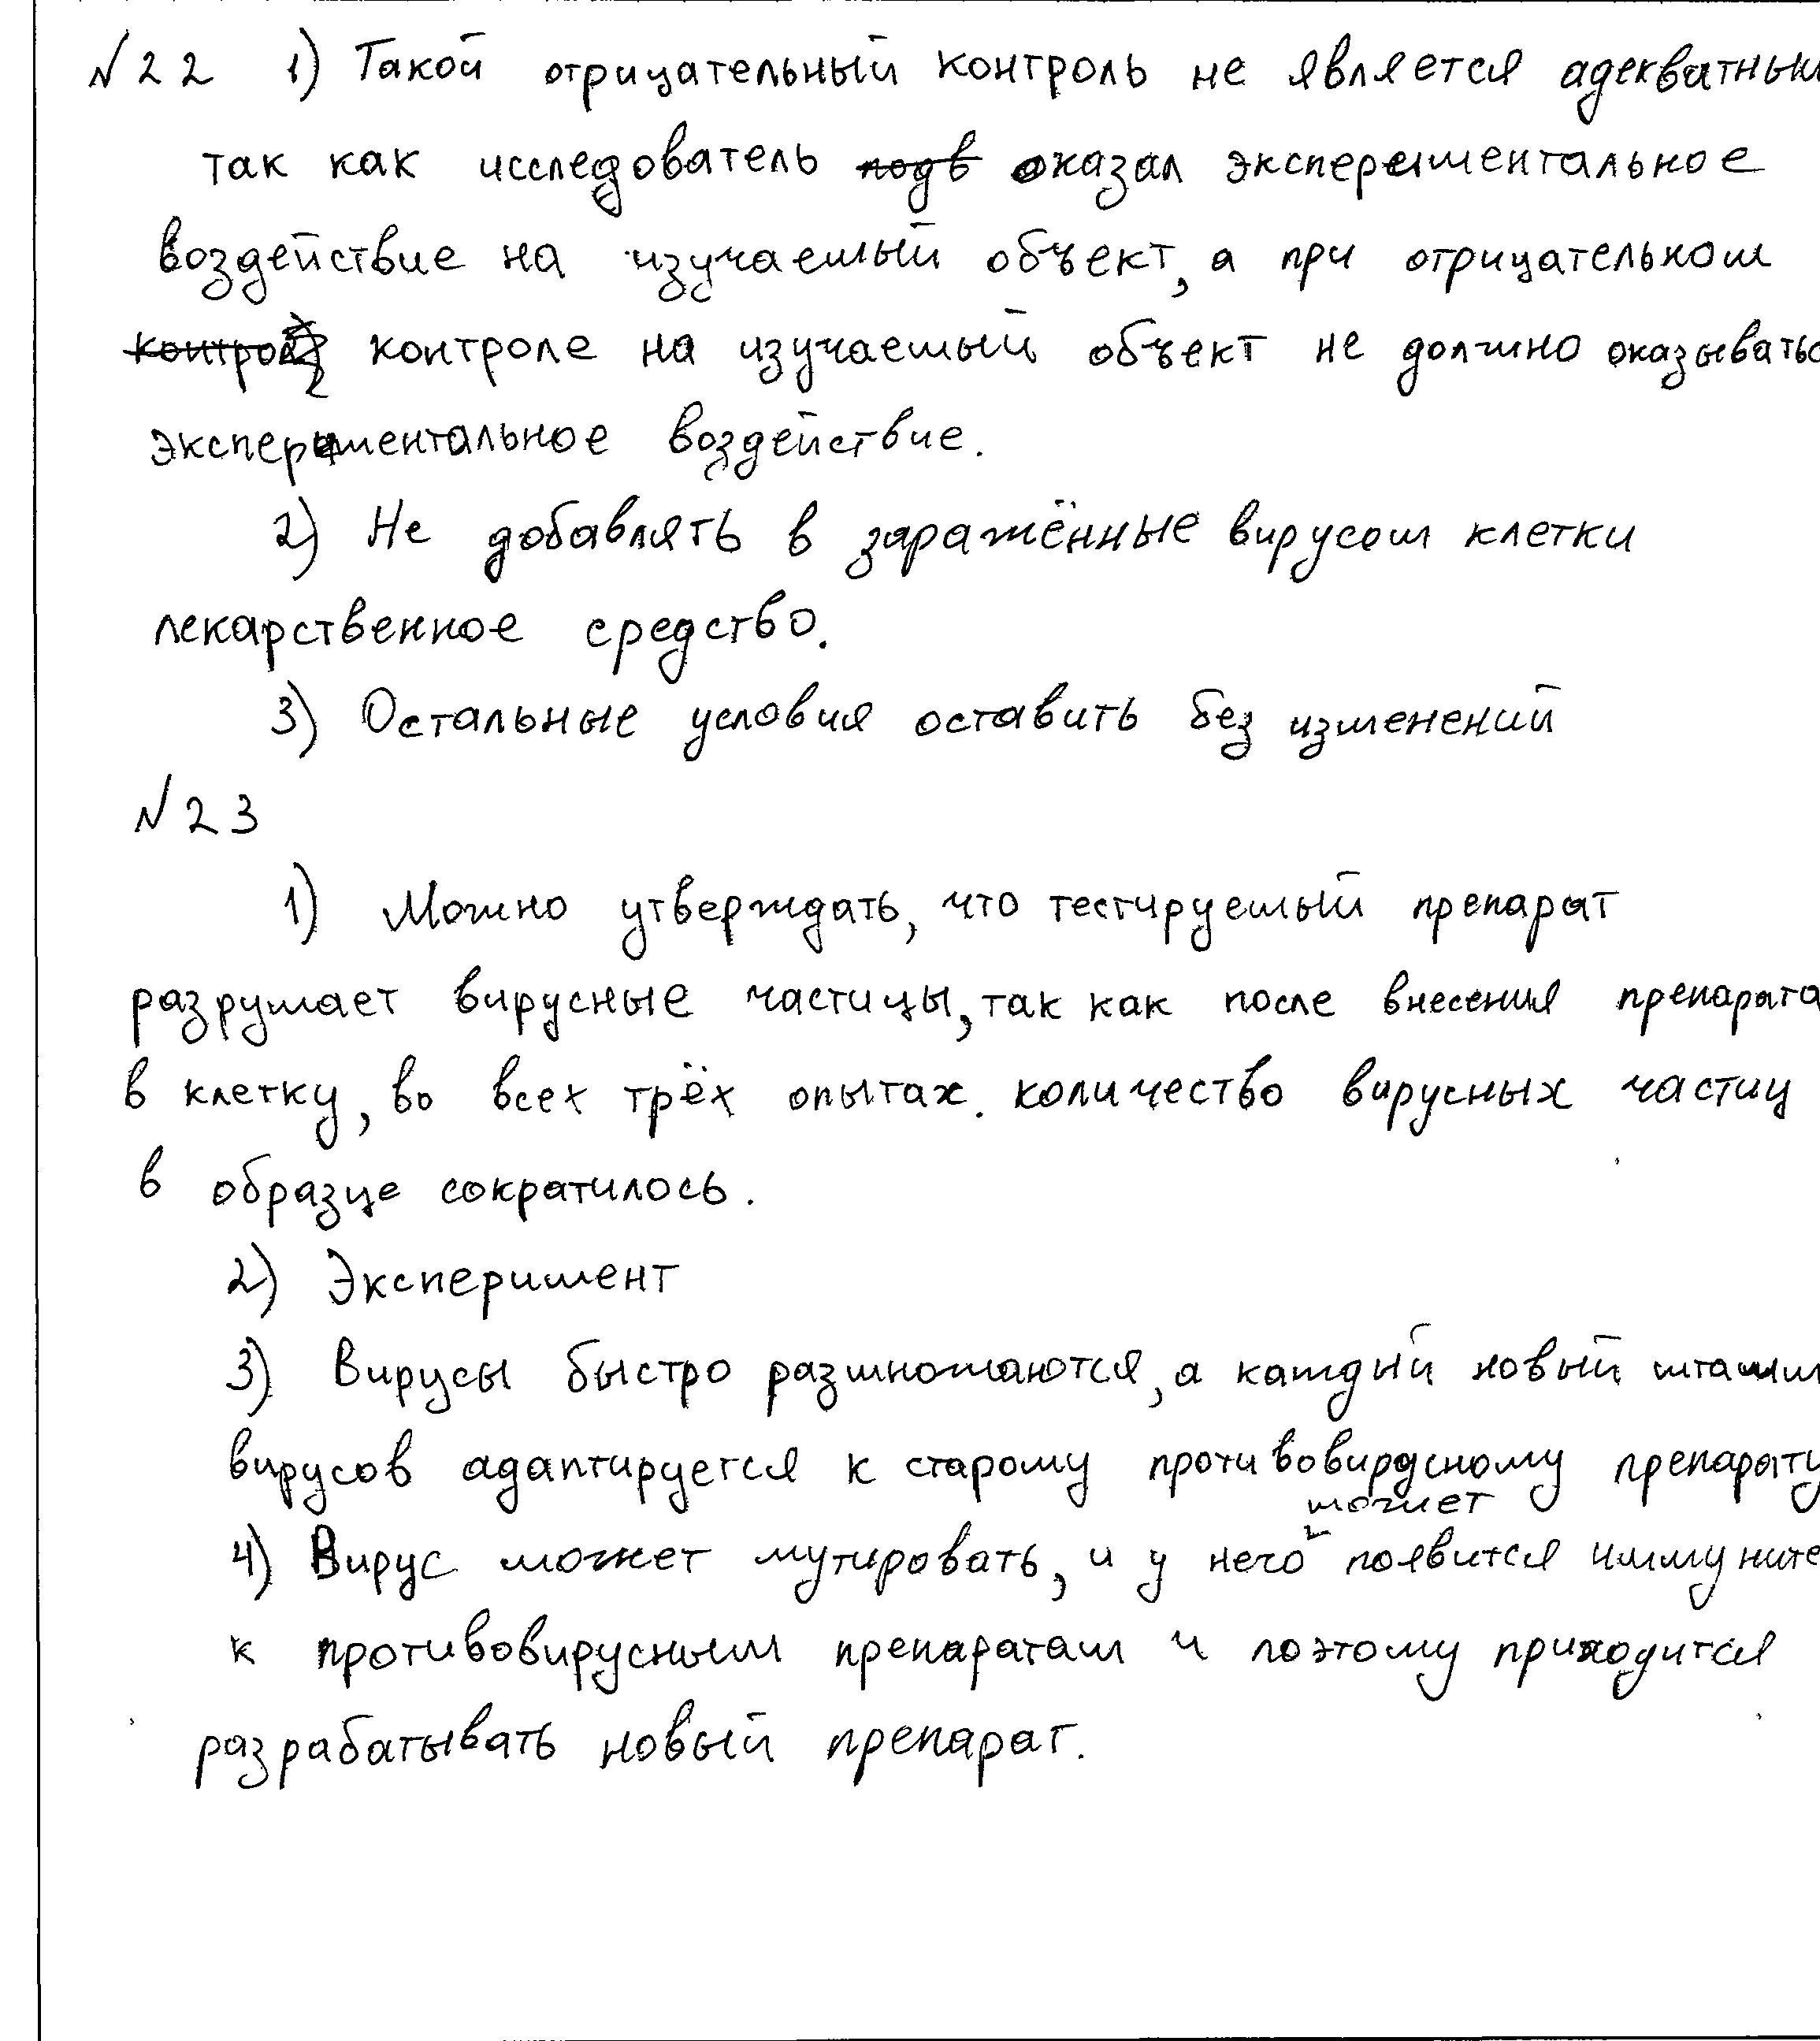 №22 1) Такой отрицательный контроль не является адекватным
так как исследователь подв оказал экспериментальное
воздействие на изучаемый объект, а при отрицательном
контрол контроле на изучаемый объект не должно оказывать
экспериментальное воздействие.
2) Не добавлять в заражённые вирусом клетки
лекарственное средство.
3) Остальные условия оставить без изменений
№23
1) Можно утверждать, что тестируемый препарат
разрушает вирусные частицы, так как после внесения препарата
в клетку, во всех трёх опытах количество вирусных частиц
в образце сократилось.
2) Эксперимент
3) Вирусы быстро размножаются, а каждый новый штамм
вирусов адаптируется к старому противовирусному препарату
может
4) Вирус может мутировать, и у него появится иммуните
к противовирусным препаратам и поэтому приходится
разрабатывать новый препарат.